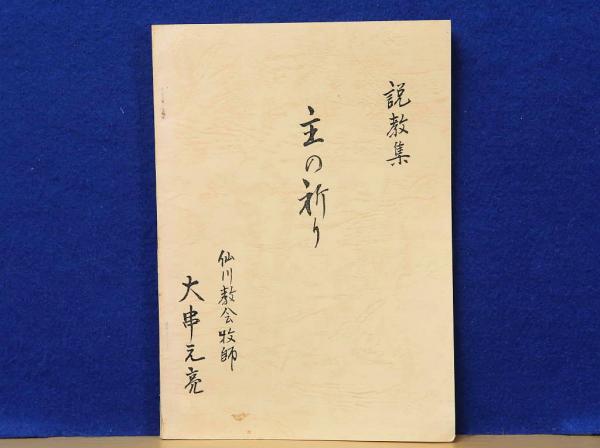 説教集
主の祈り
仙川教会牧師
大串元亮